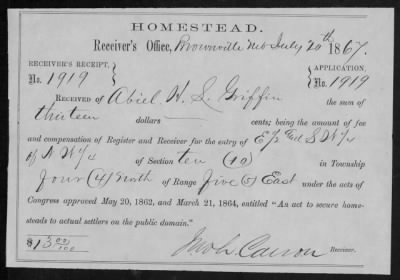 HOMESTEAD.
Receiver's Office, Brownville Neb July 20th 1867.
RECEIVER'S RECEIPT, } { APPLICATION,
No. 1919 } { No. 1919
RECEIVED OF Abiel H. S. Griffin the sum of
thirteen dollars cents; being the amount of fee
and compensation of Register and Receiver for the entry of E/2 S W/4
of N W/4 of Section ten (10) in Township
four (4) North of Range five (5) East under the acts of
Congress approved May 20, 1862, and March 21, 1864, entitled "An act to secure home-
steads to actual settlers on the public domain."
$13 00/100 Jno L. Carson Receiver.